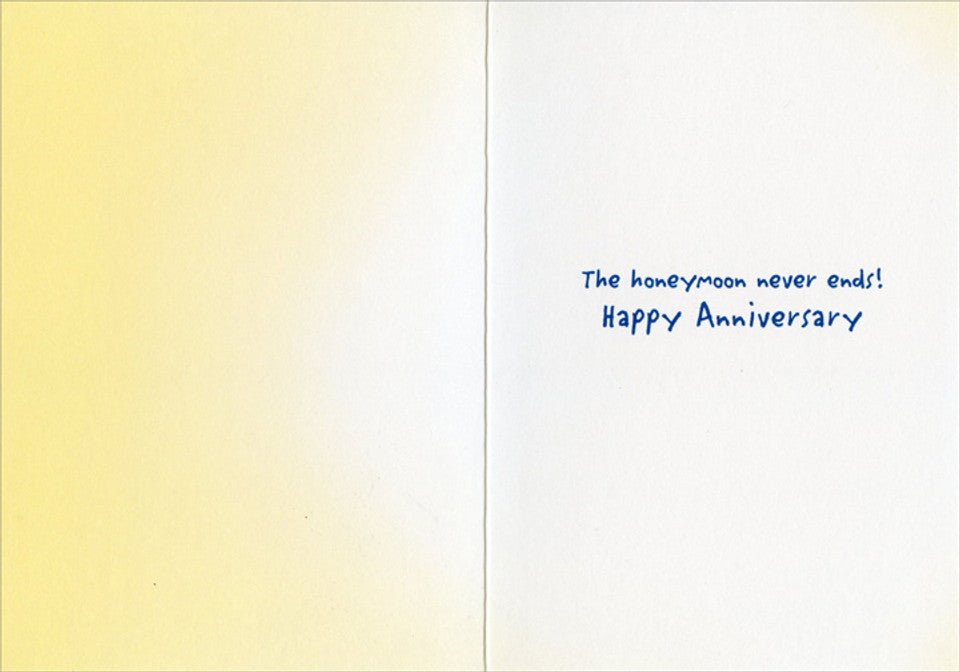 The honeymoon never ends!
Happy Anniversary